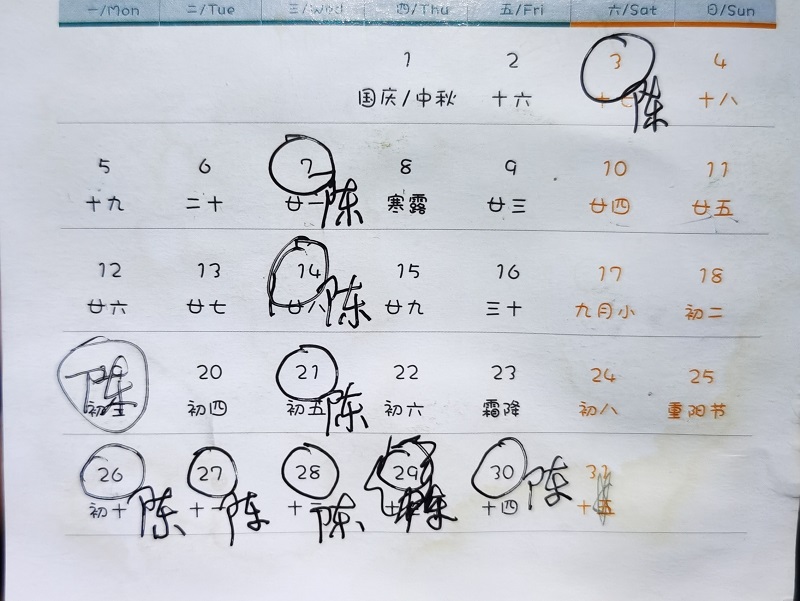 一/Mon 二/Tue 三/Wed 四/Thu 五/Fri 六/Sat 日/Sun
1 2 3 4
国庆/中秋 十六 十七 十八
陈
5 6 7 8 9 10 11
十九 二十 廿一 陈 寒露 廿三 廿四 廿五
12 13 14 15 16 17 18
廿六 廿七 廿八 陈 廿九 三十 九月小 初二
陈 20 21 22 23 24 25
初三 初四 初五 陈 初六 霜降 初八 重阳节
26 27 28 29 30 31
初十 陈 十一 陈 陈 陈 十四 陈 十五